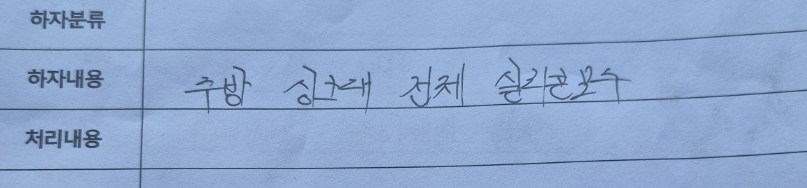 하자분류
하자내용 주방 싱크대 전체 실리콘보수
처리내용